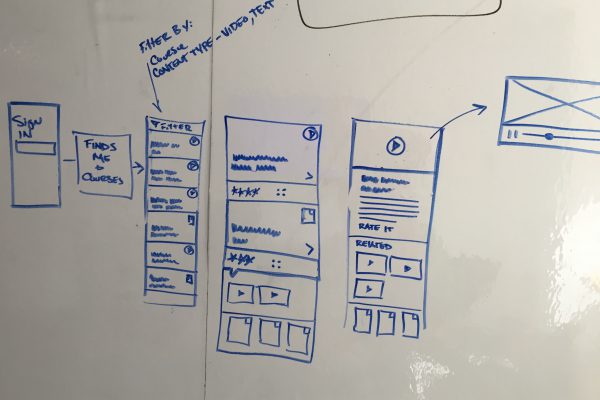 FILTER BY:
COURSE
CONTENT TYPE - VIDEO, TEXT
SIGN
IN
FINDS
ME +
COURSES
FILTER
RATE IT
RELATED